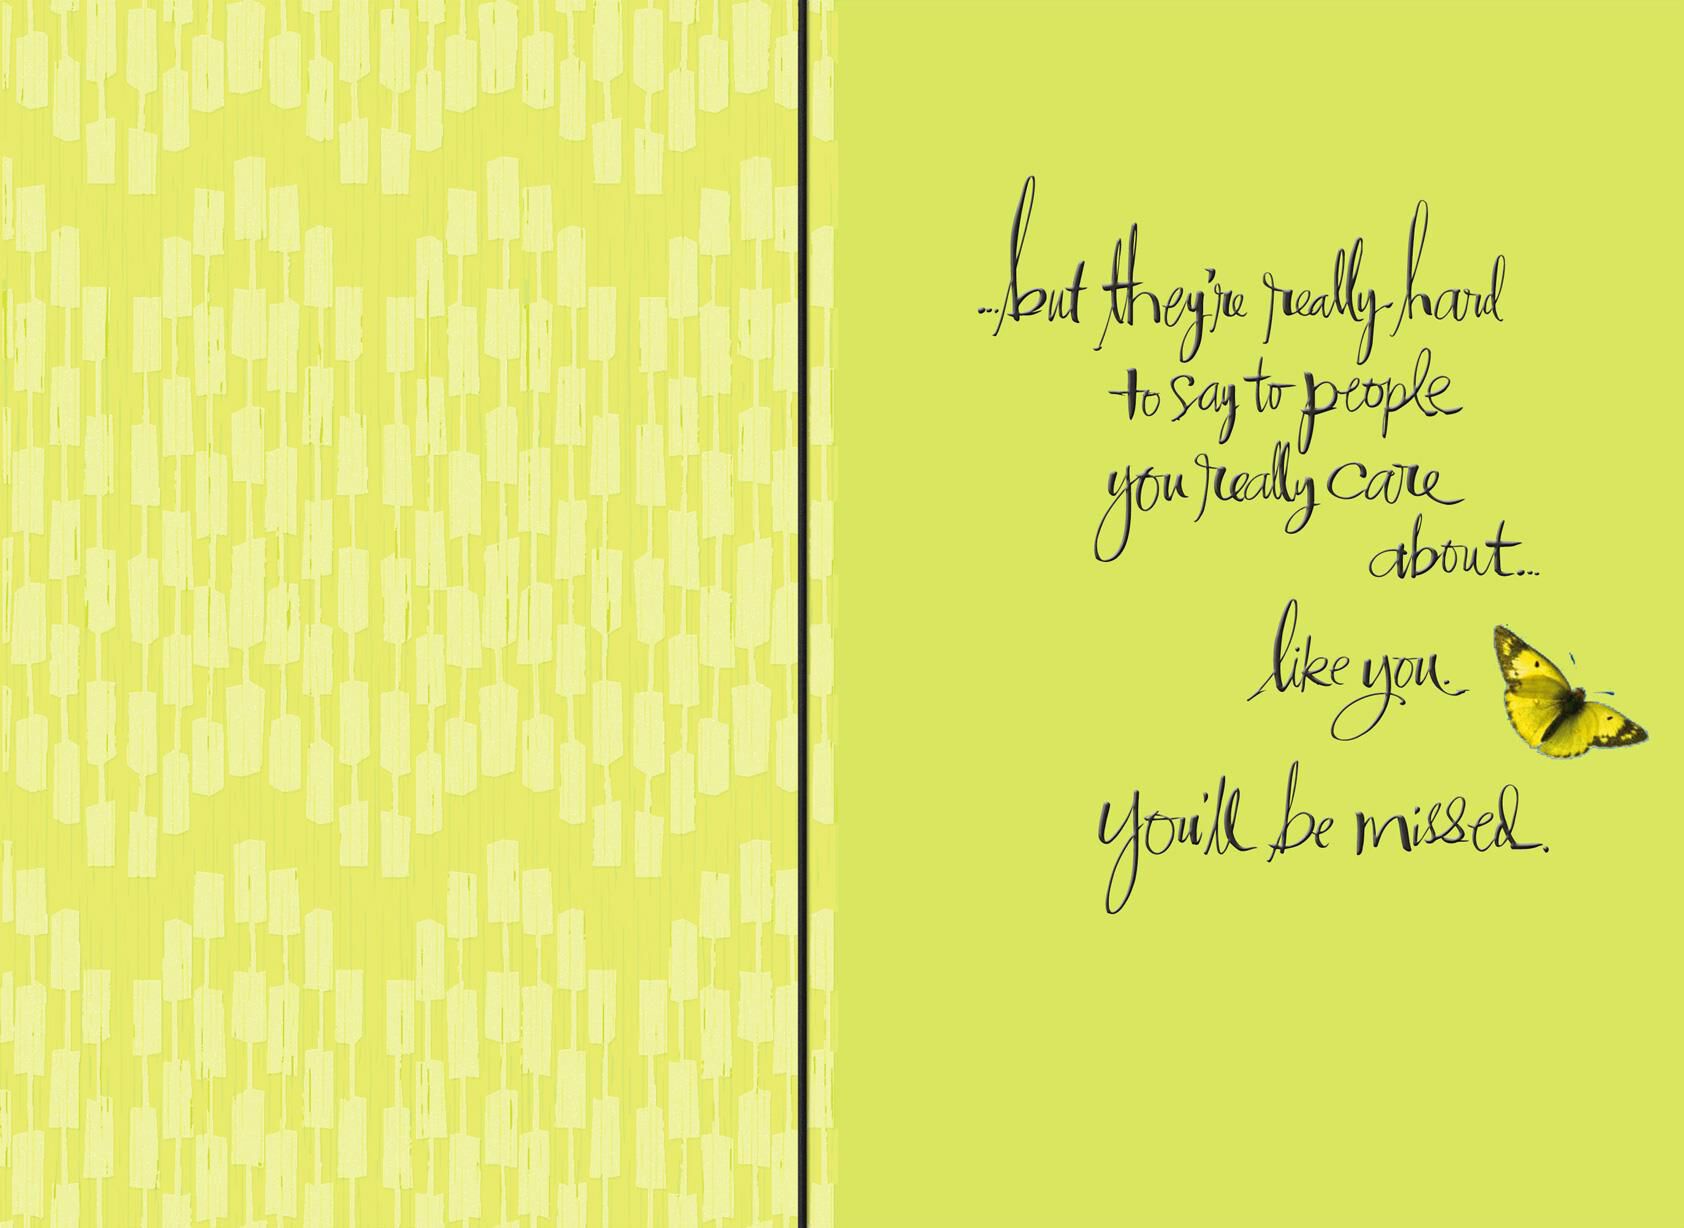 ...but they're really hard
to say to people
you really care
about...
like you.
you'll be missed.